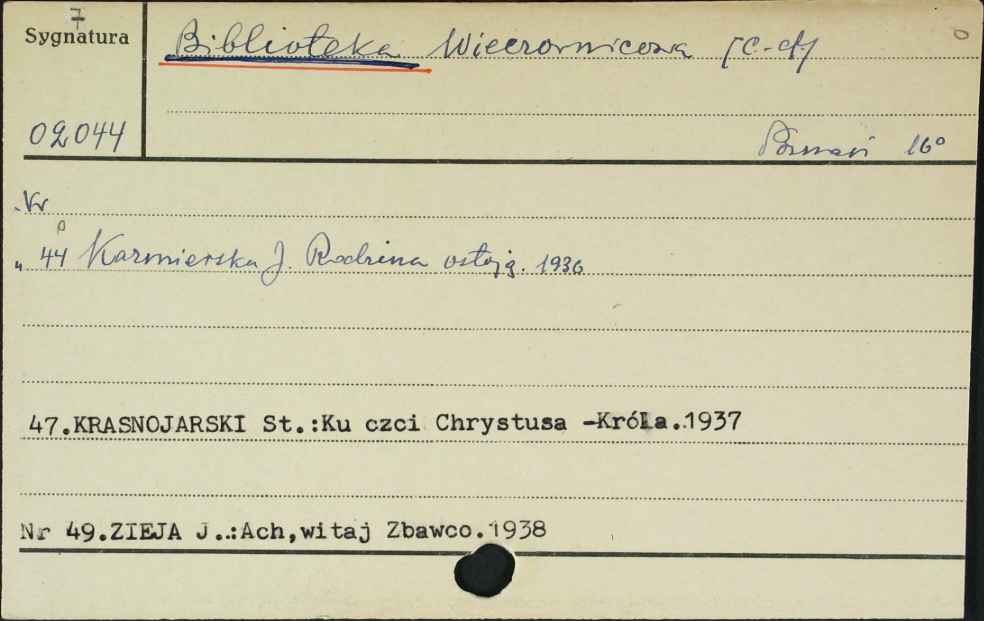 7
Sygnatura
Biblioteka Wieczornicowa [c.d.]
0
02044
Poznań 16°
Nr
" 44 Kaźmierska J. Rodzina ostoją. 1936
47.KRASNOJARSKI St.:Ku czci Chrystusa -Króla.1937
Nr 49.ZIEJA J..:Ach,witaj Zbawco.1938